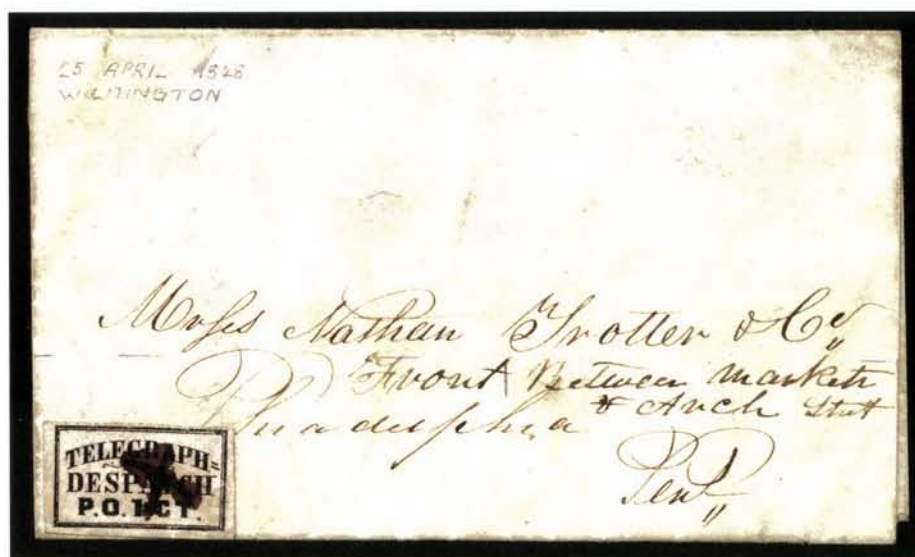 25 APRIL 1828
WILMINGTON
Messs Nathan Trotter & Co
Front Between Markett
& Arch Strtt
Philadelphia
Penā
TELEGRAPH=
DESPATCH
P.O. 1 CT.